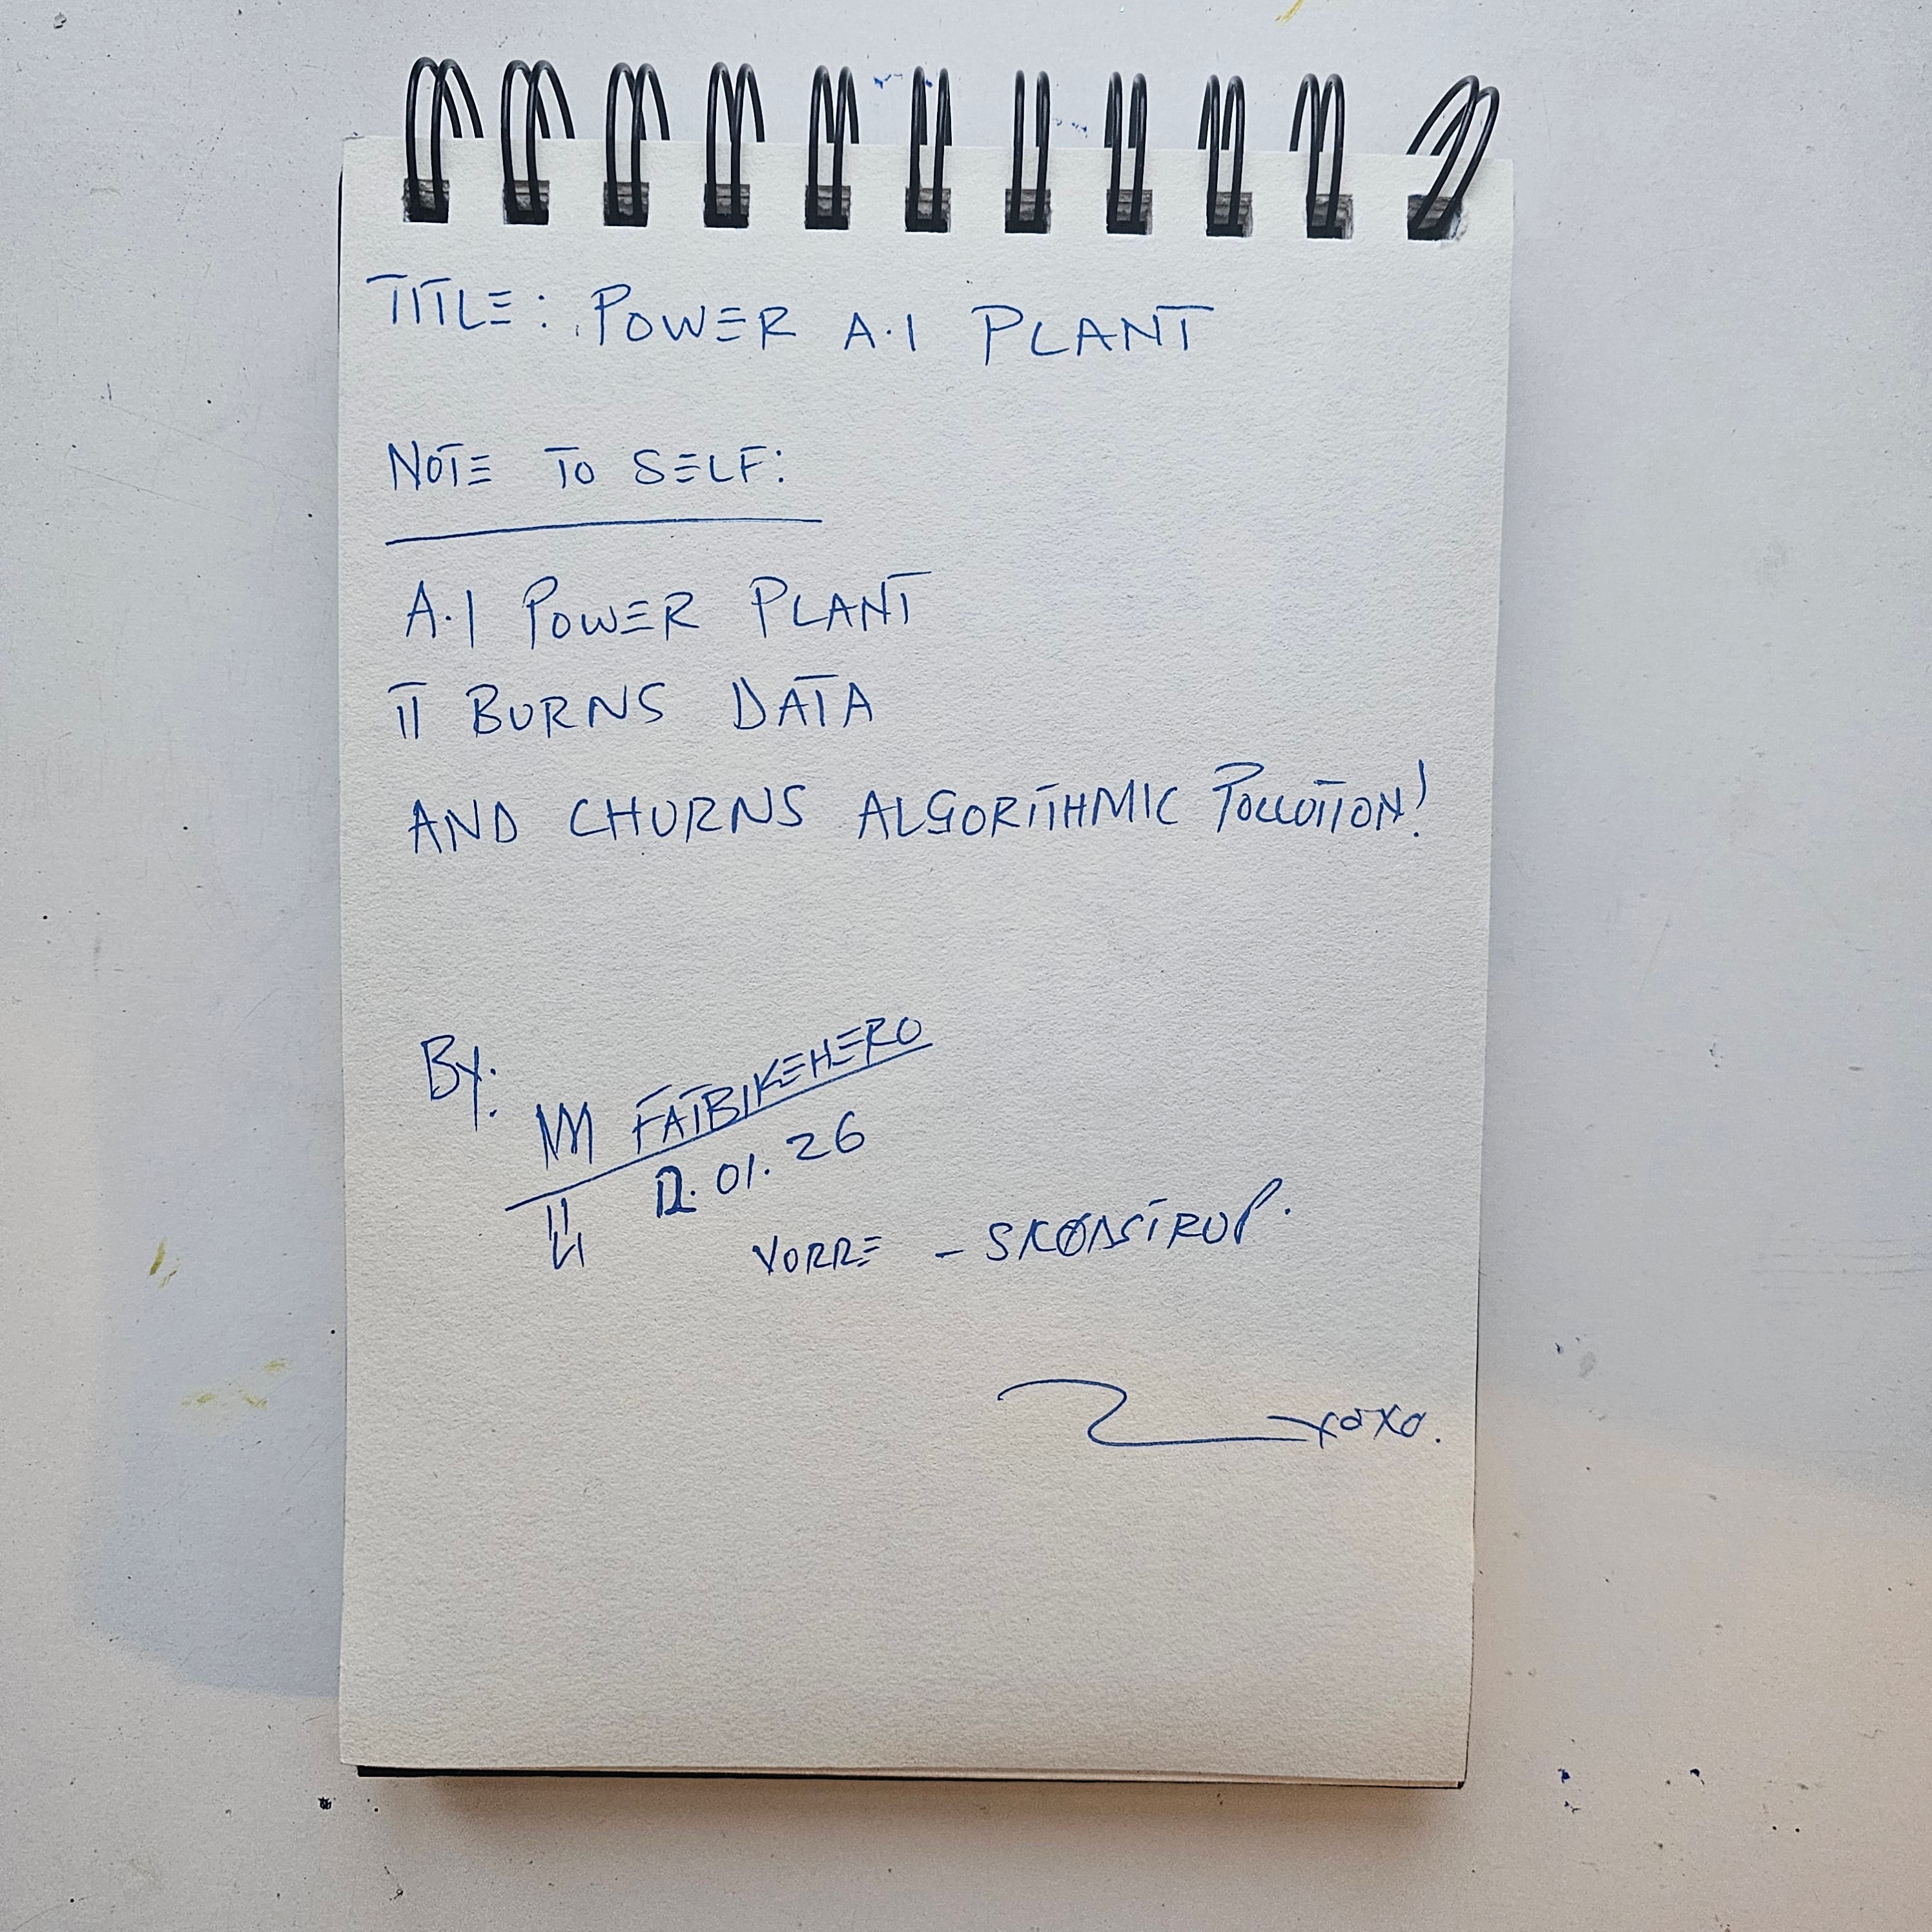 TITLE: POWER A.I PLANT
NOTE TO SELF:
A.I POWER PLANT
IT BURNS DATA
AND CHURNS ALGORITHMIC POLLUTION!
By:
FATBIKEHERO
12.01.26
VORRE - SKØDSTRUP.
xoxo.